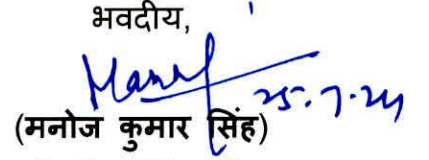 भवदीय,
Manoj 25.7.24
(मनोज कुमार सिंह)